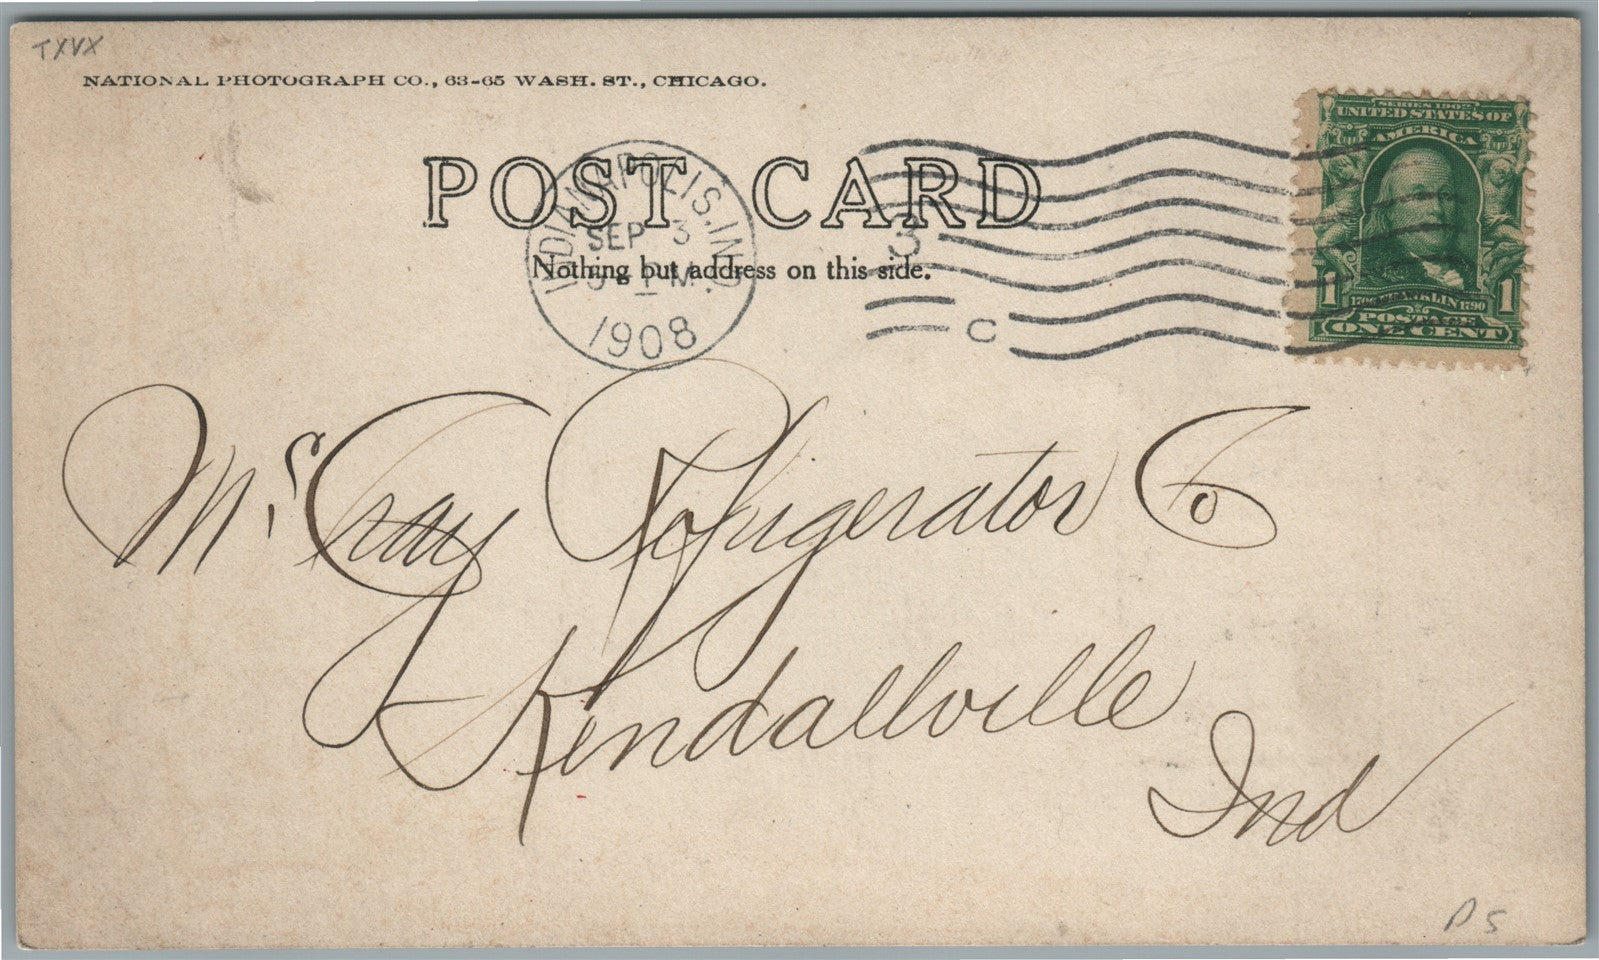 TXVX
NATIONAL PHOTOGRAPH CO., 63-65 WASH. ST., CHICAGO.
SERIES 1902
UNITED STATES OF
AMERICA
POST CARD
INDIANAPOLIS, IND.
SEP 3
PM
1908
3
C
Nothing but address on this side.
1 1
1706 FRANKLIN 1790
POSTAGE
ONE CENT
McCray Refrigerator Co
Kendallville
Ind